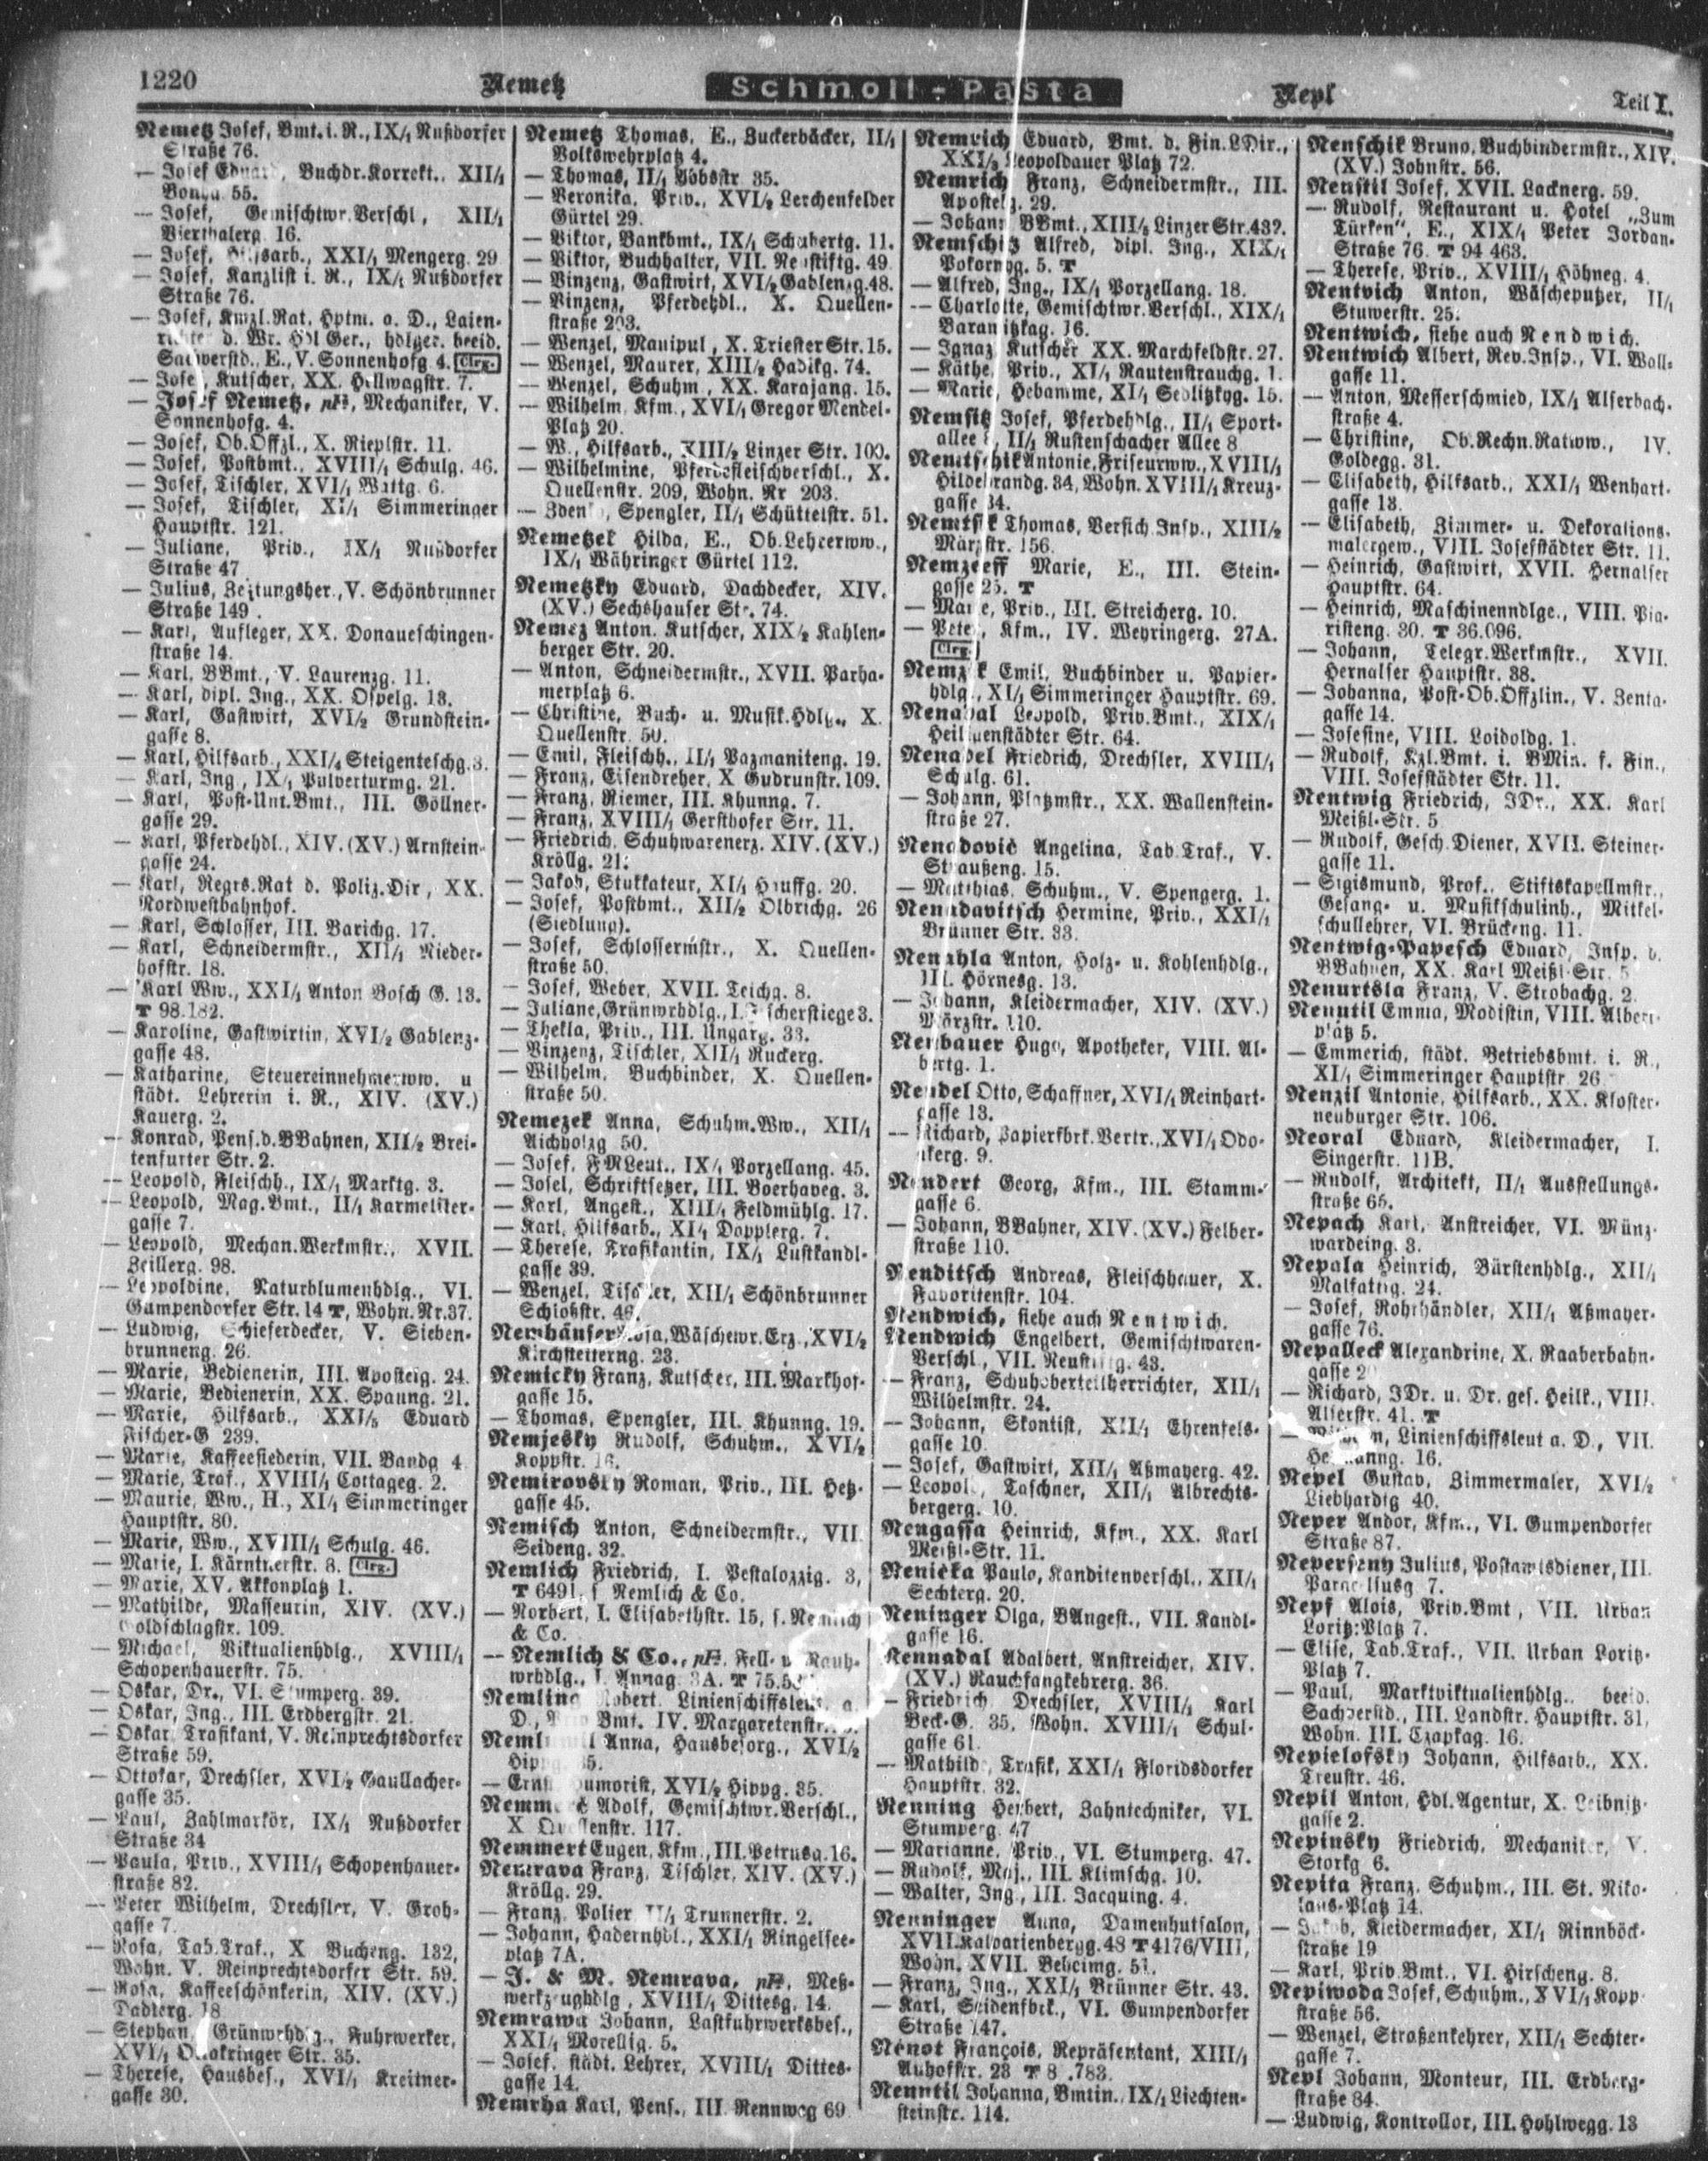 1220
Nemetz
Schmoll-Pasta
Nepl
Teil I.
Nemetz Josef, Bmt. i. R., IX/1 Nußdorfer
Straße 76.
— Josef Eduard, Buchdr.Korrekt., XII/1
55.
— Josef, Gemischtwr.Verschl, XII/1
Vierthalerg. 16.
— Josef, Hilfsarb., XXI/1 Mengerg. 29
— Josef, Kanzlist i. R., IX/1 Nußdorfer
Straße 76.
— Josef, Kanzl.Rat, Hptm. a. D., Laien-
richter d. Wr. Hdl Ger., hdlger. beeid.
Sachverstd., E., V. Sonnenhofg 4. Clrg.
— Josef, Kutscher, XX. Hellwagstr. 7.
— Josef Nemetz, Mechaniker, V.
Sonnenhofg. 4.
— Josef, Ob.Offzl., X. Rieplstr. 11.
— Josef, Postbmt., XVIII/1 Schulg. 46.
— Josef, Tischler, XVI/1 Wattg. 6.
— Josef, Tischler, XI/1 Simmeringer
Hauptstr. 121.
— Juliane, Priv., IX/1 Nußdorfer
Straße 47
— Julius, Zeitungsher., V. Schönbrunner
Straße 149.
— Karl, Aufleger, XX. Donaueschingen-
straße 14.
— Karl, BBmt., V. Laurenzg. 11.
— Karl, dipl. Ing., XX. Ospelg. 13.
— Karl, Gastwirt, XVI/2 Grundstein-
gasse 8.
— Karl, Hilfsarb., XXI/4 Steigenteschg. 3.
— Karl, Ing., IX/1 Pulverturmg. 21.
— Karl, Post-Unt.Bmt., III. Göllner-
gasse 29.
— Karl, Pferdehdl., XIV. (XV.) Arnstein-
gasse 24.
— Karl, Regrs.Rat d. Poliz.Dir, XX.
Nordwestbahnhof.
— Karl, Schlosser, III. Barichg. 17.
— Karl, Schneidermstr., XII/1 Nieder-
hofstr. 18.
— Karl Ww., XXI/1 Anton Bosch G. 13.
T 98.182.
— Karoline, Gastwirtin, XVI/2 Gablenz-
gasse 48.
— Katharine, Steuereinnehmersww. u
städt. Lehrerin i. R., XIV. (XV.)
Kauerg. 2.
— Konrad, Pens.d.BBahnen, XII/2 Brei-
tenfurter Str. 2.
— Leopold, Fleischh., IX/1 Marktg. 3.
— Leopold, Mag.Bmt., II/1 Karmeliter-
gasse 7.
— Leopold, Mechan.Werkmstr., XVII.
Zeillerg. 98.
— Leopoldine, Naturblumenhdlg., VI.
Gumpendorfer Str. 14 T, Wohn.Nr.37.
— Ludwig, Schieferdecker, V. Sieben-
brunneng. 26.
— Marie, Bedienerin, III. Apostelg. 24.
— Marie, Bedienerin, XX. Spaung. 21.
— Marie, Hilfsarb., XXI/5 Eduard
Fischer-G 239.
— Marie, Kaffeesiederin, VII. Bandg 4
— Marie, Traf., XVIII/1 Cottageg. 2.
— Maurie, Ww., H., XI/1 Simmeringer
Hauptstr. 80.
— Marie, Ww., XVIII/1 Schulg. 46.
— Marie, I. Kärntnerstr. 8. Clrg.
— Marie, XV. Akkonplatz 1.
— Mathilde, Masseurin, XIV. (XV.)
Goldschlagstr. 109.
— Michael, Viktualienhdlg., XVIII/1
Schopenhauerstr. 75.
— Oskar, Dr., VI. Stumperg. 39.
— Oskar, Ing., III. Erdbergstr. 21.
— Oskar Trafikant, V. Reinprechtsdorfer
Straße 59.
— Ottokar, Drechsler, XVI/2 Gaullacher-
gasse 35.
— Paul, Zahlmarkör, IX/1 Nußdorfer
Straße 34
— Paula, Priv., XVIII/1 Schopenhauer-
straße 82.
— Peter Wilhelm, Drechsler, V. Groh-
gasse 7.
— Rosa, Tab.Traf., X Bucheng. 132,
Wohn. V. Reinprechtsdorfer Str. 59.
— Rosa, Kaffeeschänkerin, XIV. (XV.)
Dadlerg. 18
— Stephan, Grünwrhdlg., Fuhrwerker,
XVI/1 Ottakringer Str. 35.
— Therese, Hausbes., XVI/1 Kreitner-
gasse 30.
Nemetz Thomas, E., Zuckerbäcker, II/1
Volkswehrplatz 4.
— Thomas, II/1 35.
— Veronika, Priv., XVI/2 Lerchenfelder
Gürtel 29.
— Viktor, Bankbmt., IX/1 Schubertg. 11.
— Viktor, Buchhalter, VII. Neustiftg. 49
— Vinzenz, Gastwirt, XVI/2 Gablenzg. 48.
— Vinzenz, Pferdehdl., X. Quellen-
straße 203.
— Wenzel, Manipul, X. Triester Str. 15.
— Wenzel, Maurer, XIII/2 Hadikg. 74.
— Wenzel, Schuhm., XX. Karajang. 15.
— Wilhelm, Kfm., XVI/1 Gregor Mendel-
Platz 20.
— W., Hilfsarb., XIII/2 Linzer Str. 100.
— Wilhelmine, Pferdefleischverschl., X.
Quellenstr. 209, Wohn. Nr 203.
— Zdenko, Spengler, II/1 Schüttelstr. 51.
Nemetzek Hilda, E., Ob.Lehrerww.,
IX/1 Währinger Gürtel 112.
Nemetzky Eduard, Dachdecker, XIV.
(XV.) Sechshauser Str. 74.
Nemez Anton, Kutscher, XIX/2 Kahlen-
berger Str. 20.
— Anton, Schneidermstr., XVII. Parha-
merplatz 6.
— Christine, Buch- u. Musik.Hdlg., X.
Quellenstr. 50.
— Emil, Fleischh., II/1 Pazmaniteng. 19.
— Franz, Eisendreher, X Gudrunstr. 109.
— Franz, Riemer, III. Khunng. 7.
— Franz, XVIII/1 Gersthofer Str. 11.
— Friedrich, Schuhwarenerz. XIV. (XV.)
Kröllg. 21.
— Jakob, Stukkateur, XI/1 Hauffg. 20.
— Josef, Postbmt., XII/2 Olbrichg. 26
(Siedlung).
— Josef, Schlossermstr., X. Quellen-
straße 50.
— Josef, Weber, XVII. Teichg. 8.
— Juliane, Grünwrhdlg., I. Fischerstiege 3.
— Thekla, Priv., III. Ungarg. 33.
— Vinzenz, Tischler, XII/1 Ruckerg.
— Wilhelm, Buchbinder, X. Quellen-
straße 50.
Nemezek Anna, Schuhm.Ww., XII/1
Aichholzg 50.
— Josef, FMLeut., IX/1 Porzellang. 45.
— Josef, Schriftsetzer, III. Boerhaveg. 3.
— Karl, Angest., XIII/1 Feldmühlg. 17.
— Karl, Hilfsarb., XI/1 Dopplerg. 7.
— Therese, Trafikantin, IX/1 Lustkandl-
gasse 39.
— Wenzel, Tischler, XII/1 Schönbrunner
Schloßstr. 46
Nemhäuser Rosa, Wäschewr.Erz., XVI/2
Kirchstetterng. 23.
Nemicky Franz, Kutscher, III. Markhof-
gasse 15.
— Thomas, Spengler, III. Khunng. 19.
Nemjesky Rudolf, Schuhm., XVI/2
Koppstr. 16.
Nemirovsky Roman, Priv., III. Hetz-
gasse 45.
Nemisch Anton, Schneidermstr., VII
Seideng. 32.
Nemlich Friedrich, I. Pestalozzig. 3,
T 6491, s. Nemlich & Co.
— Norbert, I. Elisabethstr. 15, s. Nemlich
& Co.
— Nemlich & Co., Fell- u Rauh-
wrhdlg., I. Annag 3A. T
Nemling Robert, Linienschiffsleut. a.
D., Priv Bmt. IV. Margaretenstr.
Anna, Hausbesorg., XVI/2
Hippg. 35.
— Ernst, Humorist, XVI/2 Hippg. 35.
Adolf, Gemischtwr.Verschl.,
X Quellenstr. 117.
Nemmert Eugen, Kfm., III. Petrusg. 16.
Nemrava Franz, Tischler, XIV. (XV.)
Kröllg. 29.
— Franz, Polier, II/1 Trunnerstr. 2.
— Johann, Hadernhdl., XXI/1 Ringelsee-
platz 7A.
— J. & M. Nemrava, Meß-
werkzeughdlg, XVIII/1 Dittesg. 14.
Nemrawa Johann, Lastfuhrwerksbes.,
XXI/1 Morellig. 5.
— Josef, städt. Lehrer, XVIII/1 Dittes-
gasse 14.
Nemrha Karl, Pens., III Rennweg 69
Nemrich Eduard, Bmt. d. Fin.LDir.,
XXI/3 Leopoldauer Platz 72.
Nemrich Franz, Schneidermstr., III.
Apostelg. 29.
— Johann BBmt., XIII/5 Linzer Str. 432.
Nemschitz Alfred, dipl. Ing., XIX/1
Pokornyg. 5. T
— Alfred, Ing., IX/1 Porzellang. 18.
— Charlotte, Gemischtwr.Verschl., XIX/1
Baranitzkag. 16.
— Ignaz, Kutscher XX. Marchfeldstr. 27.
— Käthe, Priv., XI/1 Rautenstrauchg. 1.
— Marie, Hebamme, XI/1 Sedlitzkyg. 15.
Nemsitz Josef, Pferdehdlg., II/1 Sport-
allee 8, II/1 Rustenschacher Allee 8
Nemtschik Antonie, Friseurww., XVIII/1
Hildebrandg. 34, Wohn. XVIII/1 Kreuz-
gasse 34.
Nemtsik Thomas, Versich.Insp., XIII/2
Märzstr. 156.
Nemzeeff Marie, E., III. Stein-
gasse 25. T
— Marie, Priv., III. Streicherg. 10.
— Peter, Kfm., IV. Weyringerg. 27A.
Clrg
Emil, Buchbinder u. Papier-
hdlg., XI/1 Simmeringer Hauptstr. 69.
Nenadal Leopold, Priv.Bmt., XIX/1
Heiligenstädter Str. 64.
Nenadel Friedrich, Drechsler, XVIII/1
Schulg. 61.
— Johann, Platzmstr., XX. Wallenstein-
straße 27.
Nenadović Angelina, Tab.Traf., V.
Straußeng. 15.
— Matthias, Schuhm., V. Spengerg. 1.
Nenadavitsch Hermine, Priv., XXI/1
Brünner Str. 33.
Nenahla Anton, Holz- u. Kohlenhdlg.,
III. Hörnesg. 13.
— Johann, Kleidermacher, XIV. (XV.)
Märzstr. 110.
Nenbauer Hugo, Apotheker, VIII. Al-
bertg. 1.
Nendel Otto, Schaffner, XVI/1 Reinhart-
gasse 13.
— Richard, Papierfbrk.Vertr., XVI/1 Odo-
akerg. 9.
Nendert Georg, Kfm., III. Stamm-
gasse 6.
— Johann, BBahner, XIV. (XV.) Felber-
straße 110.
Nenditsch Andreas, Fleischhauer, X.
Favoritenstr. 104.
Nendwich, siehe auch Nentwich.
Nendwich Engelbert, Gemischtwaren-
Verschl., VII. Neustiftg. 43.
— Franz, Schuhoberteilherrichter, XII/1
Wilhelmstr. 24.
— Johann, Skontist, XII/1 Ehrenfels-
gasse 10
— Josef, Gastwirt, XII/1 Aßmayerg. 42.
— Leopold, Taschner, XII/1 Albrechts-
bergerg. 10.
Nengassa Heinrich, Kfm., XX. Karl
Meißl-Str. 11.
Nenicka Paula, Kanditenverschl., XII/1
Sechterg. 20.
Neninger Olga, BAngest., VII. Kandl-
gasse 16.
Nennadal Adalbert, Anstreicher, XIV.
(XV.) Rauchfangkehrerg. 36.
— Friedrich, Drechsler, XVIII/1 Karl
Beck-G. 35, Wohn. XVIII/1 Schul-
gasse 61.
— Mathilde, Trafik, XXI/1 Floridsdorfer
Hauptstr. 32.
Nenning Herbert, Zahntechniker, VI.
Stumperg. 47
— Marianne, Priv., VI. Stumperg. 47.
— Rudolf, Maj., III. Klimschg. 10.
— Walter, Ing., III. Jacquing. 4.
Nenninger Anna, Damenhutsalon,
XVII.Kalvarienbergg. 48 T 4176/VIII,
Wohn. XVII. Beheimg. 51.
— Franz, Ing., XXI/1 Brünner Str. 43.
— Karl, Seidenfbrk., VI. Gumpendorfer
Straße 147.
Nénot François, Repräsentant, XIII/1
Auhofstr. 23 T
Nenntil Johanna, Bmtin., IX/1 Liechten-
steinstr. 114.
Nenschik Bruno, Buchbindermstr., XIV.
(XV.) Johnstr. 56.
Nenstil Josef, XVII. Lacknerg. 59.
— Rudolf, Restaurant u. Hotel „Zum
Türken", E., XIX/1 Peter Jordan-
Straße 76. T 94 463.
— Therese, Priv., XVIII/1 Höhneg. 4.
Nentvich Anton, Wäscheputzer, II/1
Stuwerstr. 25.
Nentwich, siehe auch Nendwich.
Nentwich Albert, Rev.Insp., VI. Wall-
gasse 11.
— Anton, Messerschmied, IX/1 Alserbach-
straße 4.
— Christine, Ob.Rechn.Ratww., IV.
Goldegg. 31.
— Elisabeth, Hilfsarb., XXI/1 Wenhart-
gasse 13.
— Elisabeth, Zimmer- u. Dekorations-
malergew., VIII. Josefstädter Str. 11.
— Heinrich, Gastwirt, XVII. Hernalser
Hauptstr. 64.
— Heinrich, Maschinenndlge., VIII. Pia-
risteng. 30. T 36.096.
— Johann, Telegr.Werkmstr., XVII.
Hernalser Hauptstr. 38.
— Johanna, Post-Ob.Offzlin., V. Zenta-
gasse 14.
— Josefine, VIII. Loidoldg. 1.
— Rudolf, Kzl.Bmt. i. BMin. f. Fin.,
VIII. Josefstädter Str. 11.
Nentwig Friedrich, JDr., XX. Karl
Meißl-Str. 5
— Rudolf, Gesch.Diener, XVII. Steiner-
gasse 11.
— Sigismund, Prof., Stiftskapellmstr.,
Gesang- u. Musikschulinh., Mittel-
schullehrer, VI. Brückeng. 11.
Nentwig-Papesch Eduard, Insp. d.
BBahnen, XX. Karl Meißl-Str. 5
Nenurtsla Franz, V. Strobachg. 2
Nenutil Emma, Modistin, VIII. Albert-
platz 5.
— Emmerich, städt. Betriebsbmt. i. R.,
XI/1 Simmeringer Hauptstr. 26
Nenzil Antonie, Hilfsarb., XX. Kloster-
neuburger Str. 106.
Neoral Eduard, Kleidermacher, I.
Singerstr. 11B.
— Rudolf, Architekt, II/1 Ausstellungs-
straße 65.
Nepach Karl, Anstreicher, VI. Münz-
wardeing. 3.
Nepala Heinrich, Bürstenhdlg., XII/1
Malfattig. 24.
— Josef, Rohrhändler, XII/1 Aßmayer-
gasse 76.
Nepalleck Alexandrine, X. Raaberbahn-
gasse
— Richard, JDr. u. Dr. ges. Heilk., VIII.
Alserstr. 41. T
— Linienschiffsleut a. D., VII.
Hermanng. 16.
Nepel Gustav, Zimmermaler, XVI/2
Liebhardtg 40.
Neper Andor, Kfm., VI. Gumpendorfer
Straße 87.
Neperseny Julius, Postamtsdiener, III.
Paracelsusg 7.
Nepf Alois, Priv.Bmt, VII. Urban
Loritz-Platz 7.
— Elise, Tab.Traf., VII. Urban Loritz-
Platz 7.
— Paul, Marktviktualienhdlg., beeid.
Sachverstd., III. Landstr. Hauptstr. 31,
Wohn. III. Czapkag. 16.
Nepielofsky Johann, Hilfsarb., XX.
Treustr. 46.
Nepil Anton, Hdl.Agentur, X. Leibnitz-
gasse 2.
Nepinsky Friedrich, Mechaniker, V.
Storkg 6.
Nepita Franz, Schuhm., III. St. Niko-
laus-Platz 14.
— Jakob, Kleidermacher, XI/1 Rinnböck-
straße 19
— Karl, Priv.Bmt., VI. Hirscheng. 8.
Nepiwoda Josef, Schuhm., XVI/1 Kopp-
straße 56.
— Wenzel, Straßenkehrer, XII/1 Sechter-
gasse 7.
Nepl Johann, Monteur, III. Erdberg-
straße 84.
— Ludwig, Kontrollor, III. Hohlwegg. 13